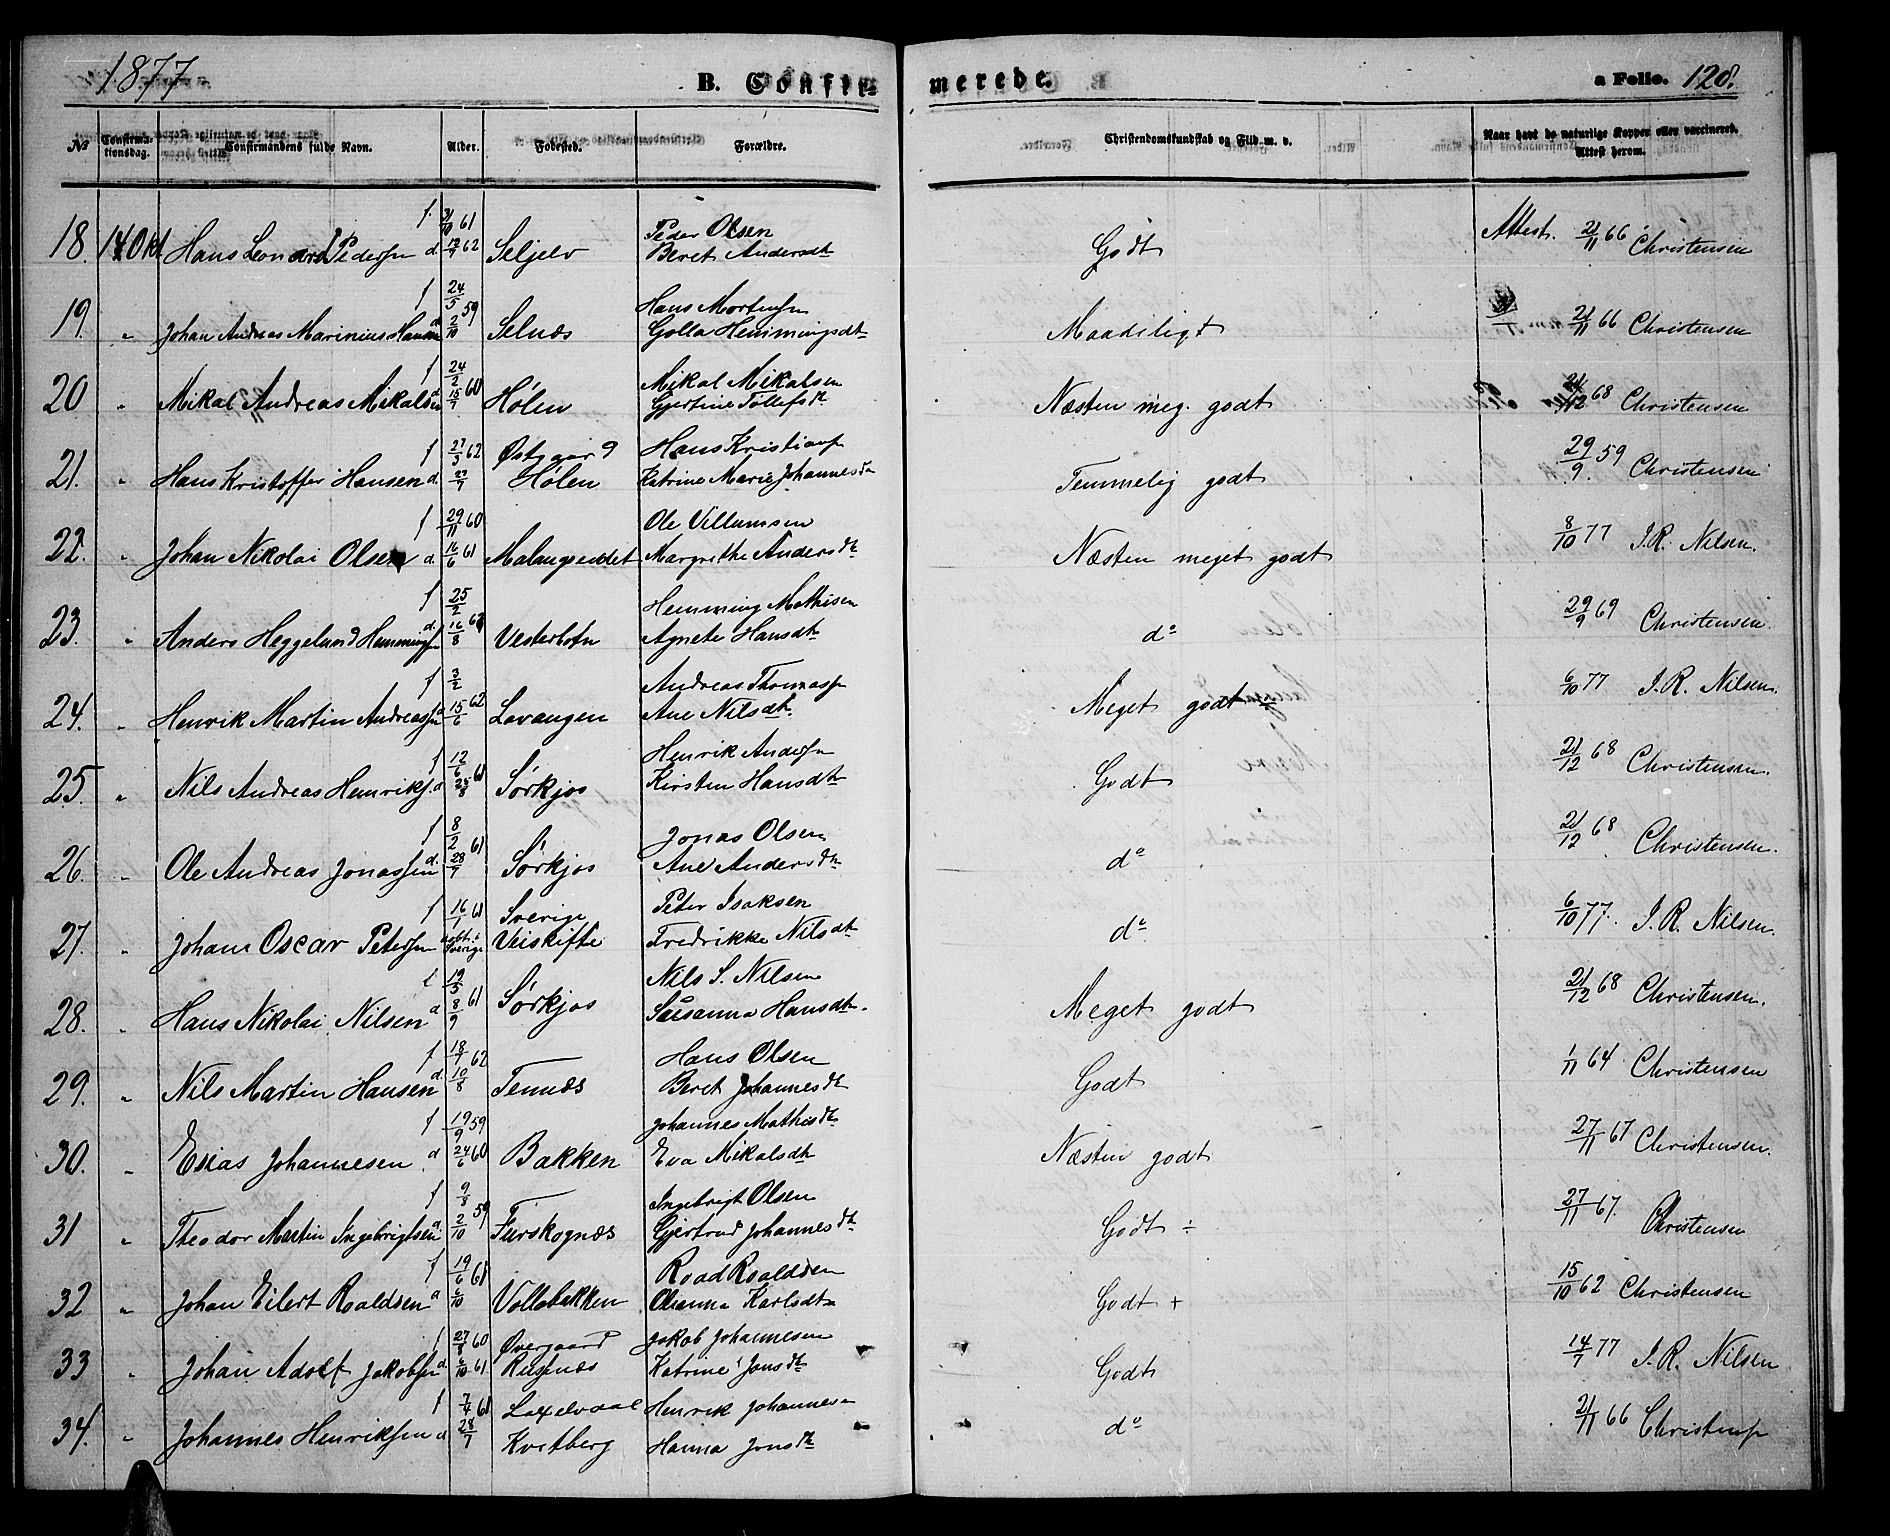 1877
B. Confir-
merede.
a Folio. 128.
No
Confirma-
tionsdag.
Confirmandens fulde Navn.
Alder.
Fodested.
Forældre.
Christendomskundskab og Flid m. v.
Naar havt de naturlige Kopper eller vaccineret.
Attest herom.
18. 14 Okt Hans Leonard Pedersen f. 31/10 61 d. 17/7 62 Seljelv Peder Olsen Beret Andersdt Godt Attest. 21/11 66 Christensen
19. " Johan Andreas Marinius Hansen f 24/5 59 d. 2/10 Selnæs Hans Mortensen Golla Hemmingsdt Maadeligt 21/11 66 Christensen
20 " Mikal Andreas Mikalsen f 24/2 60 d 15/7 Hølen Mikal Mikalsen Gjertine Tollefsdt Næsten meg. godt 21/12 68 Christensen
21. " Hans Kristoffer Hansen f 27/3 62 d. 27/7 Østgaard Hølen Hans Kristiansen Katrine Marie Johannesdt Temmelig godt 29/9 59 Christensen
22. " Johan Nikolai Olsen f 29/11 60 d. 16/6 61 Malangseidet Ole Villumsen Margrethe Andersdt Næsten meget godt 8/10 77 I. R. Nilsen.
23. " Anders Heggelund Hemmingsen f 25/2 d. 16/8 Vesterbotn Hemming Mathisen Agnete Hansdt do 29/9 69 Christensen.
24. " Henrik Martin Andreassen f 3/2 d 15/6 62 Lavangen Andreas Thomassen Ane Nilsdt. Meget godt 6/10 77 I. R. Nilsen.
25. " Nils Andreas Henriks. f 12/6 61 d Sørkjos Henrik Andersen Kirsten Hansdt Godt 21/12 68 Christensen.
26. " Ole Andreas Jonassen f 8/2 61 d. 28/7 Sørkjos Jonas Olsen Ane Andersdt do 21/12 68 Christensen.
27. " Johan Oscar Petersen f 16/1 61 døbt i Sverige Sverige Veiskifte Peter Isaksen Fredrikke Nilsdt do 6/10 77. I. R. Nilsen.
28. " Hans Nikolai Nilsen f. 19/5 d 8/9 61 Sørkjos Nils S. Nilsen Susanna Hansdt. Meget godt 21/12 68 Christensen.
29. " Nils Martin Hansen f 18/7 62 d. 10/8 Tennæs Hans Olsen Beret Johannesdt Godt 1/11 64 Christensen
30. " Esias Johannesen f 19/9 59 d 24/6 60 Bakken Johannes Mathisdt Eva Mikalsdt Næsten godt 27/11 67 Christensen.
31 " Theodor Martin Ingebrigtsen f 9/8 59 d. 2/10 Furskognæs Ingebrigt Olsen Gjertrud Johannesdt Godt ÷ 27/11 67. Christensen
32 " Johan Eilert Roaldsen f 19/6 61 d 6/10 Vollabakken Road Roaldsen Ohanna Karlsdt Godt + 15/10 62 Christensen
33 " Johan Adolf Jakobsen f 60 d 6/10 61 Øvergaard Jakob Johannesen Katrine Jonsdt Godt 14/7 77 I. R. Nilsen
34. " Johannes Henriksen f 7/4 61 d 28/7 Laxelvdal Kvitberg Henrik Johannesen Hanna Jonsdt do 21/11 66 Christensen